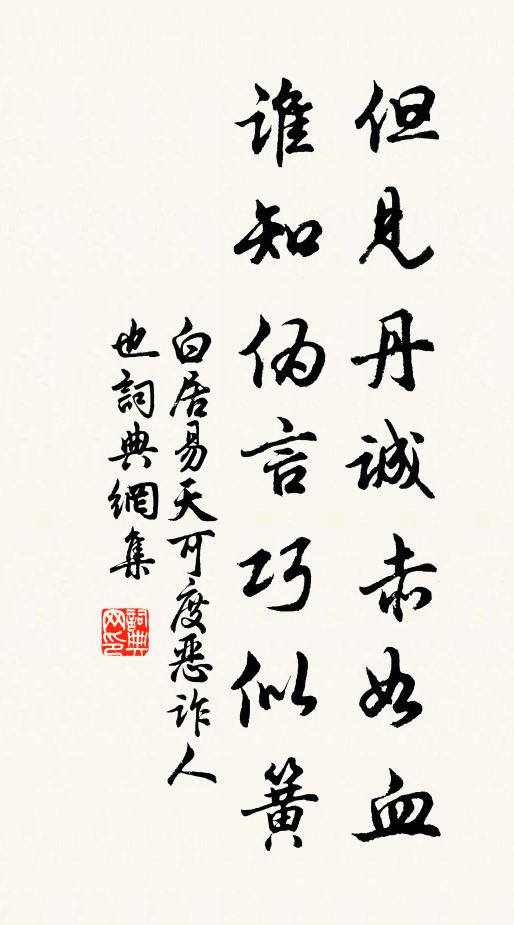 但見丹誠赤如血
誰知偽言巧似簧
白居易天可度惡詐人
也詞典網集
詞典
网印